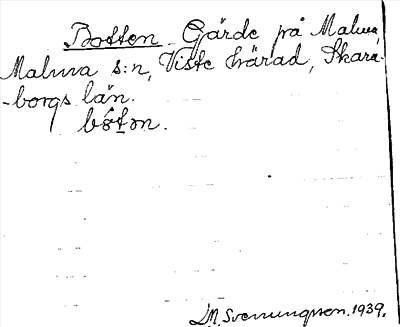 Botten Gärde på Malma,
Malma s:n, Viste härad, Skara-
-borgs län.
bót̲ən.
D.N. Svenungsson. 1939.